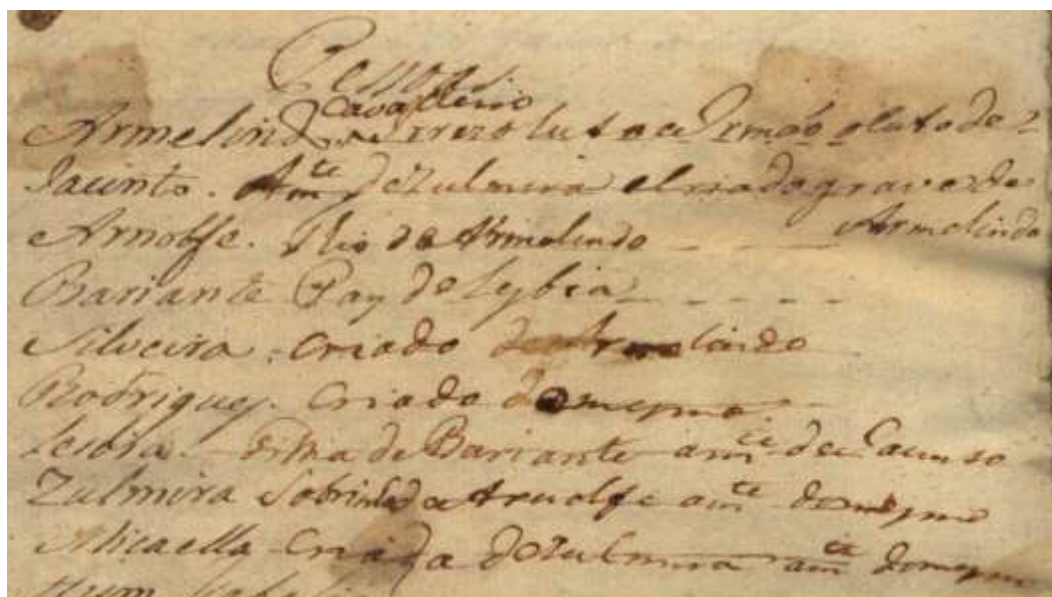 Pessoas
Cavalleiro
Armelindo Irrezoluto Irmão oluto de
Jacinto. Am.te de Zulmira el criado grave de
Arnolfe. Tio de Armelindo - - - - Armelindo
Bariante Pay de Lesbia - - - -
Silveira - Criado de Armelindo
Rodrigues. Criado do mesmo -
Lesbia - Filha de Bariante am.te de
Zulmira Sobrinha de Arnolfe am.te do mesmo
Micaella - Criada de Zulmira am.te do mesmo
Hum